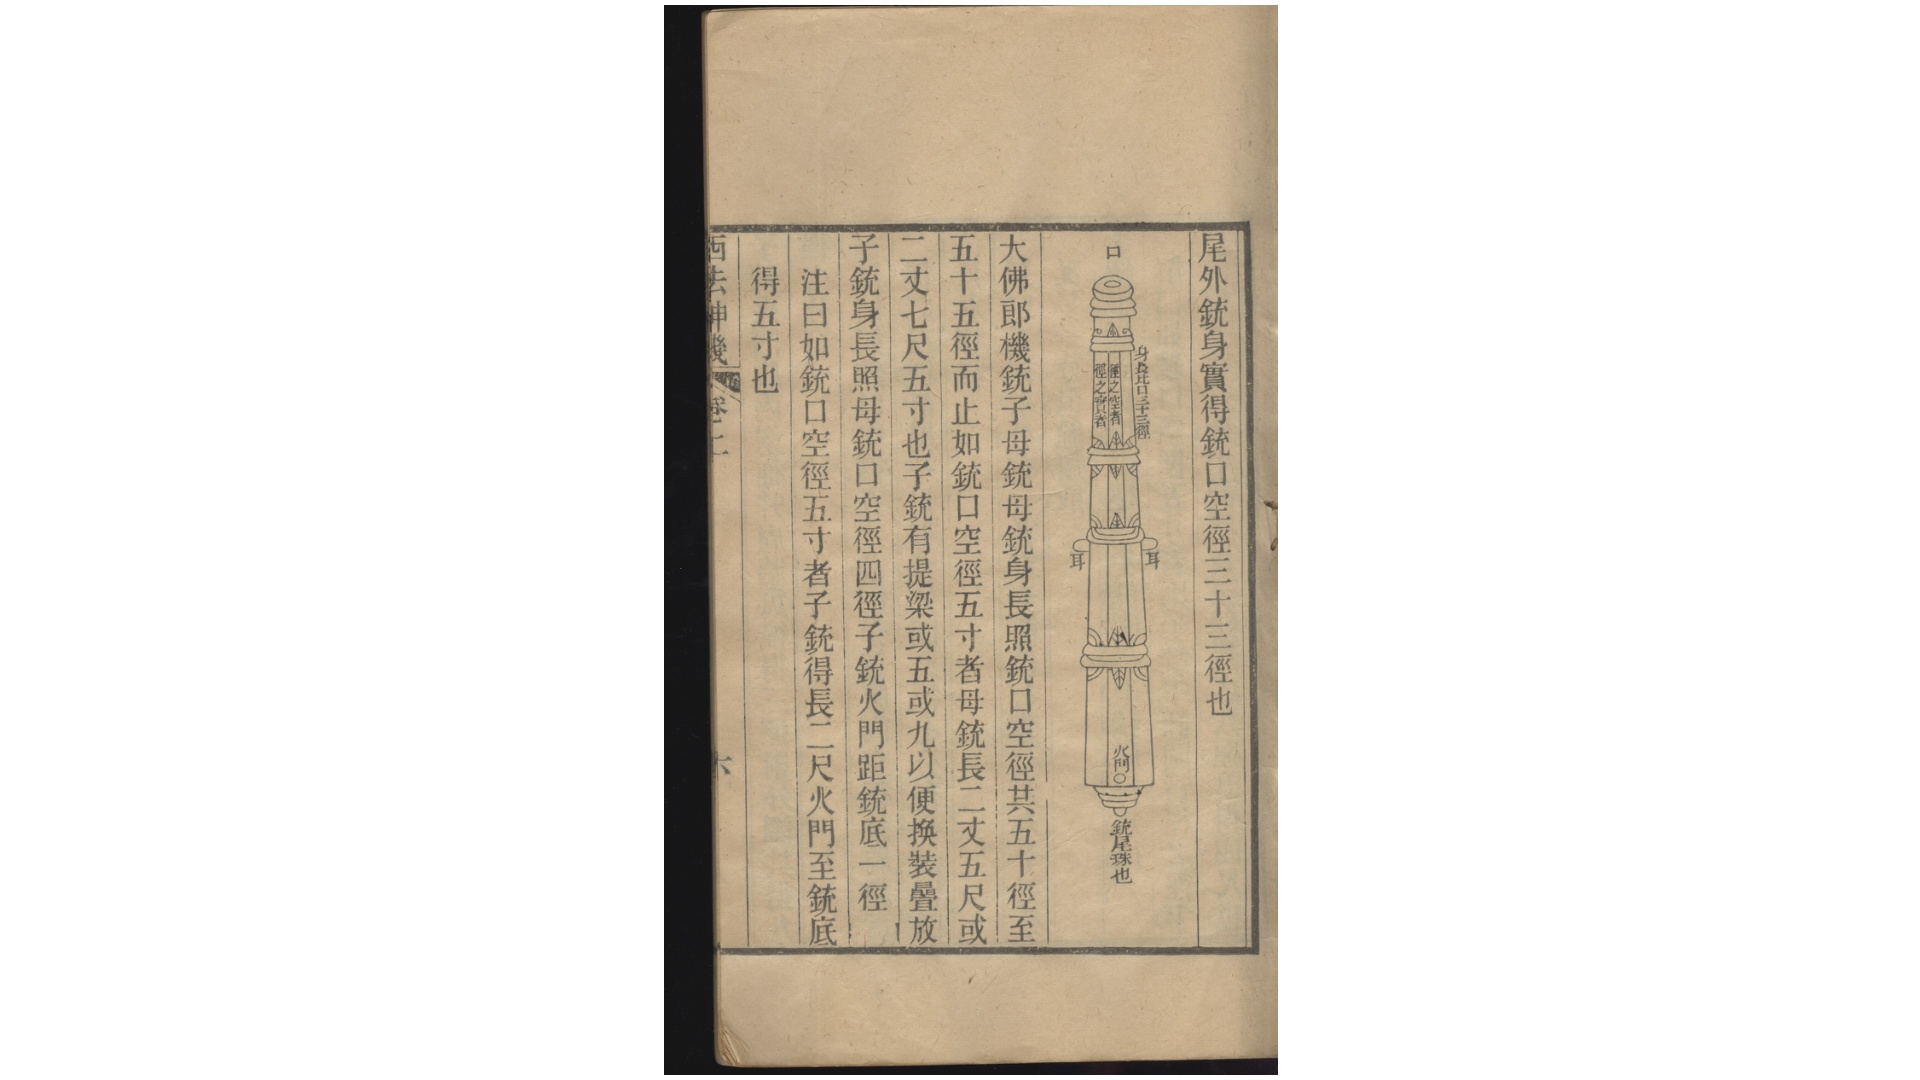 尾外銃身實得銃口空徑三十三徑也
口
身長比口三十三徑
徑之空者
徑之實者
耳
耳
火門
銃尾珠也
大佛郎機銃子母銃母銃身長照銃口空徑共五十徑至
五十五徑而止如銃口空徑五寸者母銃長二丈五尺或
二丈七尺五寸也子銃有提梁或五或九以便換裝疊放
子銃身長照母銃口空徑四徑子銃火門距銃底一徑
注曰如銃口空徑五寸者子銃得長二尺火門至銃底
得五寸也
西法神機
卷上
六